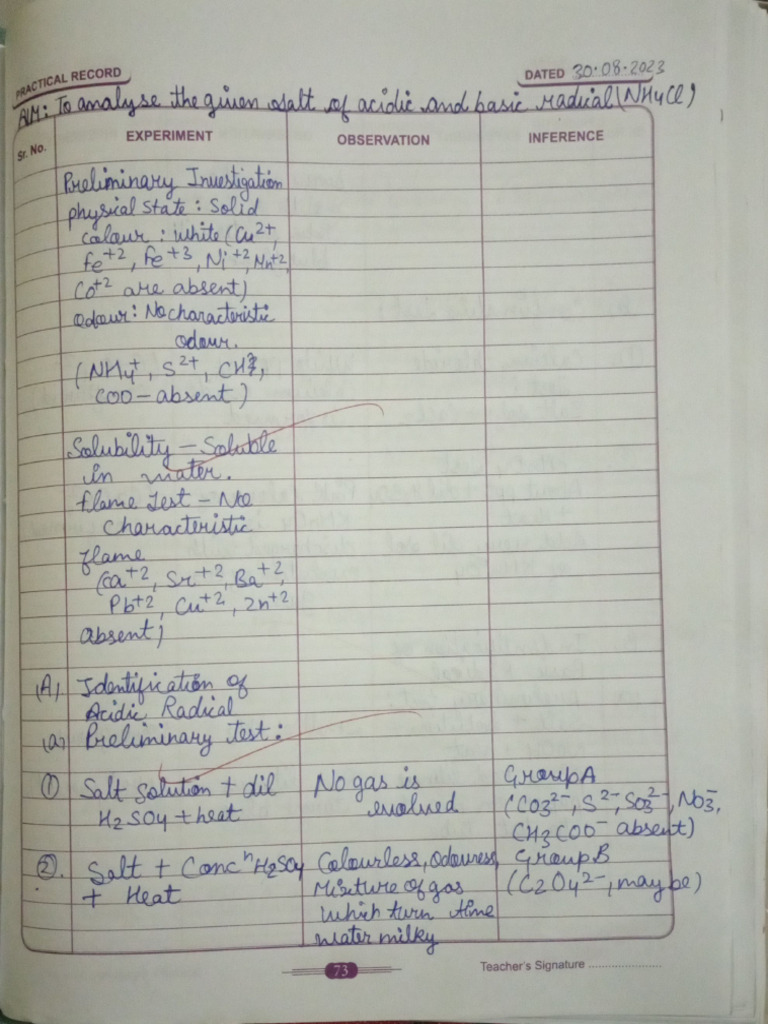 PRACTICAL RECORD
DATED 30.08.2023
AIM: To analyse the given salt of acidic and basic radical (NH4Cl)
Sr. No.
EXPERIMENT
OBSERVATION
INFERENCE
Preliminary Investigation
physical state : Solid
colour : white (Cu2+,
Fe+2, Fe+3, Ni+2, Mn+2,
Co+2 are absent)
Odour : No characteristic
odour.
(NH4+, S2+, CH3,
COO- absent)
Solubility - Soluble
in water.
flame test - No
characteristic
flame
(Ca+2, Sr+2, Ba+2,
Pb+2, Cu+2, Zn+2
absent)
(A) Identification of
Acidic Radical
(a) Preliminary test :
① Salt solution + dil
H2SO4 + heat
No gas is
evolved
Group A
(CO3 2-, S2-, SO3 2-, NO3-,
CH3COO- absent)
②. Salt + Conc n H2SO4
+ Heat
Colourless, Odouress,
Mixture of gas
which turn lime
water milky
Group B
(C2O4 2-, may be)
73
Teacher's Signature ......................